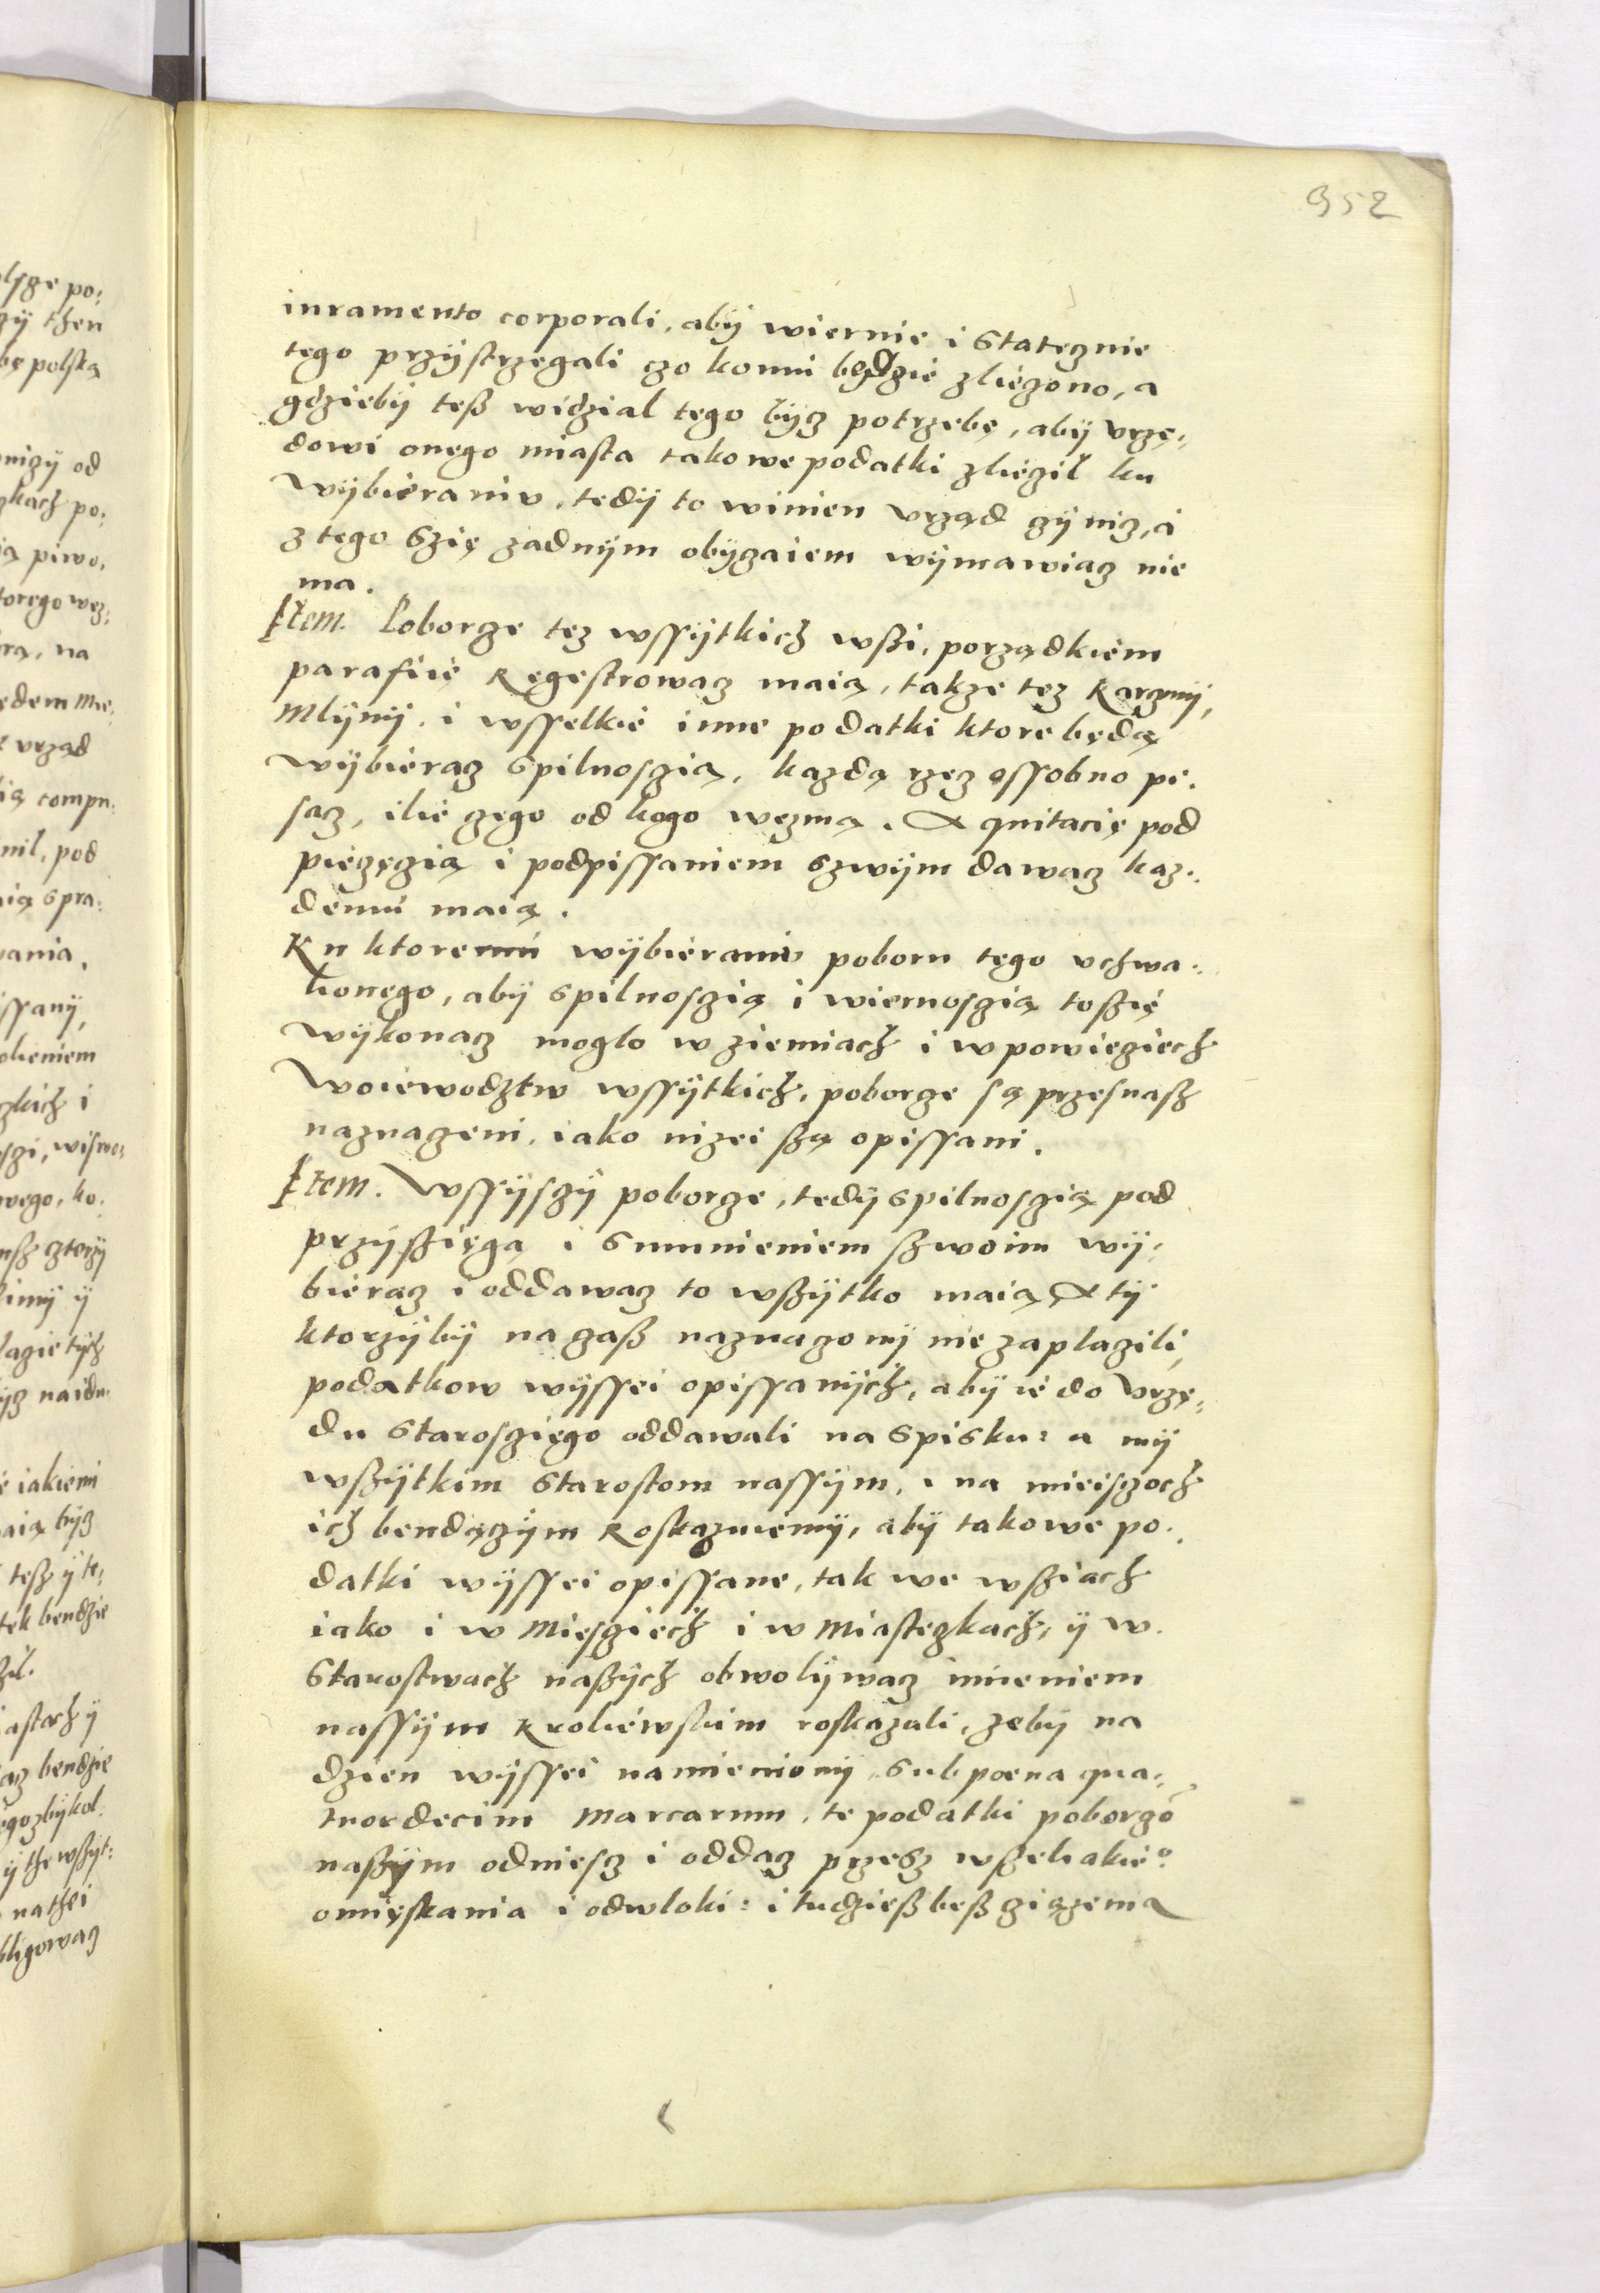 952
iuramento corporali, aby wiernie i statecznie
tego przystrzegali czo komu będzie zliezono, a
gdzieby tesz widzial tego bycz potrzebę, aby vrzę-
dowi onego miasta takowe podatki zlieził ku
wybieraniu, tedy to winien vrząd czynicz, i
z tego szię zadnym obyczaiem wymawiacz nie
ma.
Item. Poborze tez wssytkich wszi, porządkiem
parafiie Regestrowacz maią, takze tez Karczmy,
Mlyny, i wsselkie inne podatki ktore będą
wybieracz spilnosczią, kazdą rzecz ossobno pi-
sacz, ilie czego od kogo wezmą. A quitacię pod
pieczęczią i podpissaniem szwym dawacz kaz-
demu maią.
Ku ktoremu wybieraniu poboru tego vchwa-
lionego, aby spilnosczią i wiernosczią toszię
wykonacz mogło w ziemiach i w powieciech
Woiewodztw wssytkich, poborze są przesnasz
naznaczeni, iako nizei szą opissani.
Item. Wssysczy poborze, tedy spilnosczią pod
przyszięgą i sumnieniem szwoim wy-
bieracz i oddawacz to wszytko maią. A ty
ktorzyby na czasz naznaczony nie zaplaczili,
podatkow wyssei opissanych, aby ie do vrzę-
du starosciego oddawali na spisku: a my
wszytkim starostom nassym, i na mieisczoch
ich bendączym Roskazuiemy, aby takowe po-
datki wyssei opissane, tak we wsziach
iako i w Miesciech i w Miasteczkach, y w
starostwach naszych obwolywacz imieniem
nassym Kroliewskim roskazali, zeby na
dzien wyssei namieniony, sub poena qua-
tuordecim Marcarum, te podatki poborzo
naszym odniescz i oddacz przesz wszeliakie°
omięskania i odwloki: i tudziesz besz cziązema